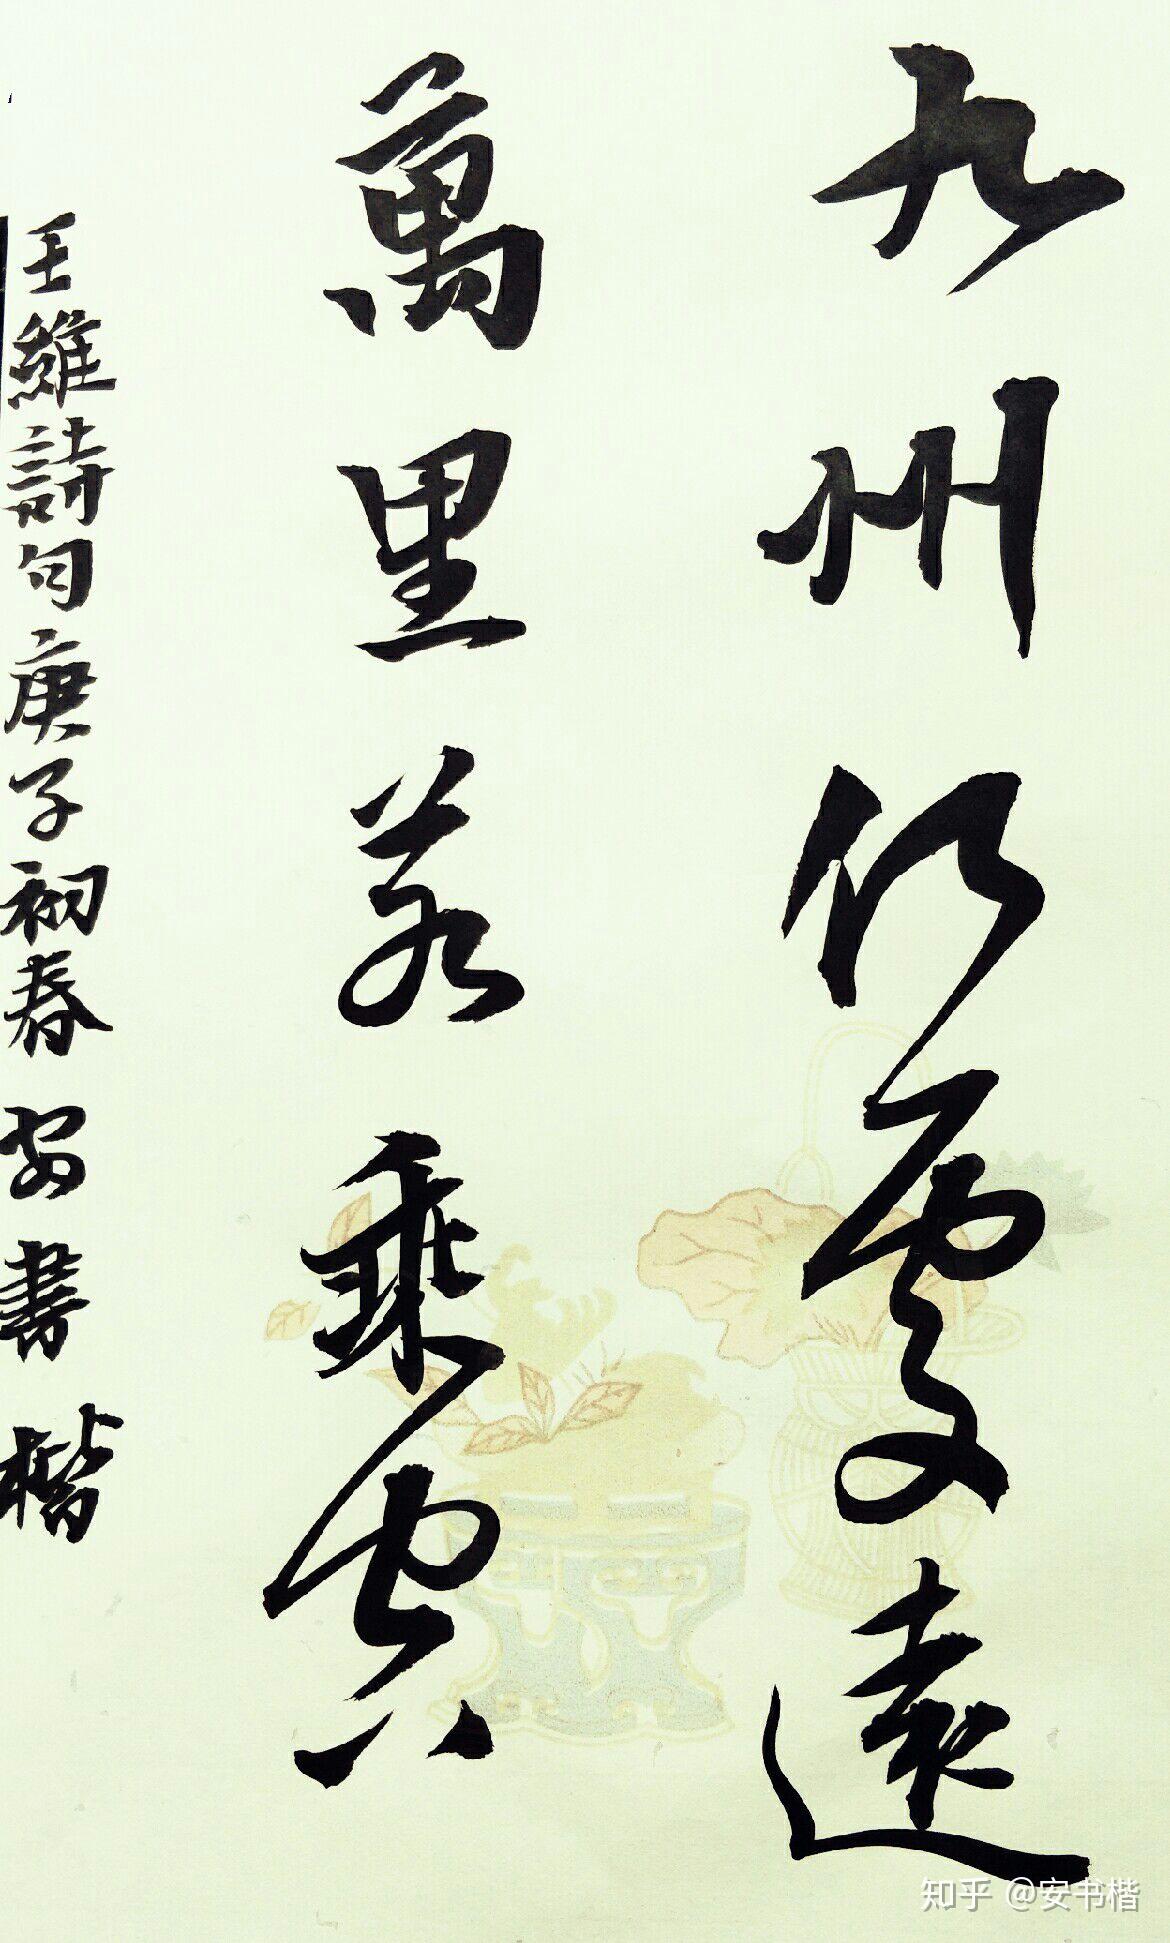 九州何處遠
萬里若乘空
王維詩句庚子初春安書楷
知乎 @安书楷